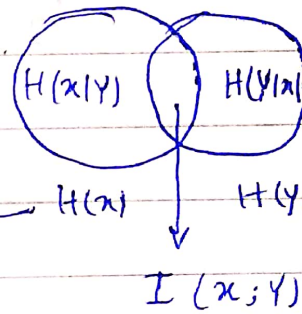 H(x|Y) H(Y|x|
H(x) H(y
I (x; Y)